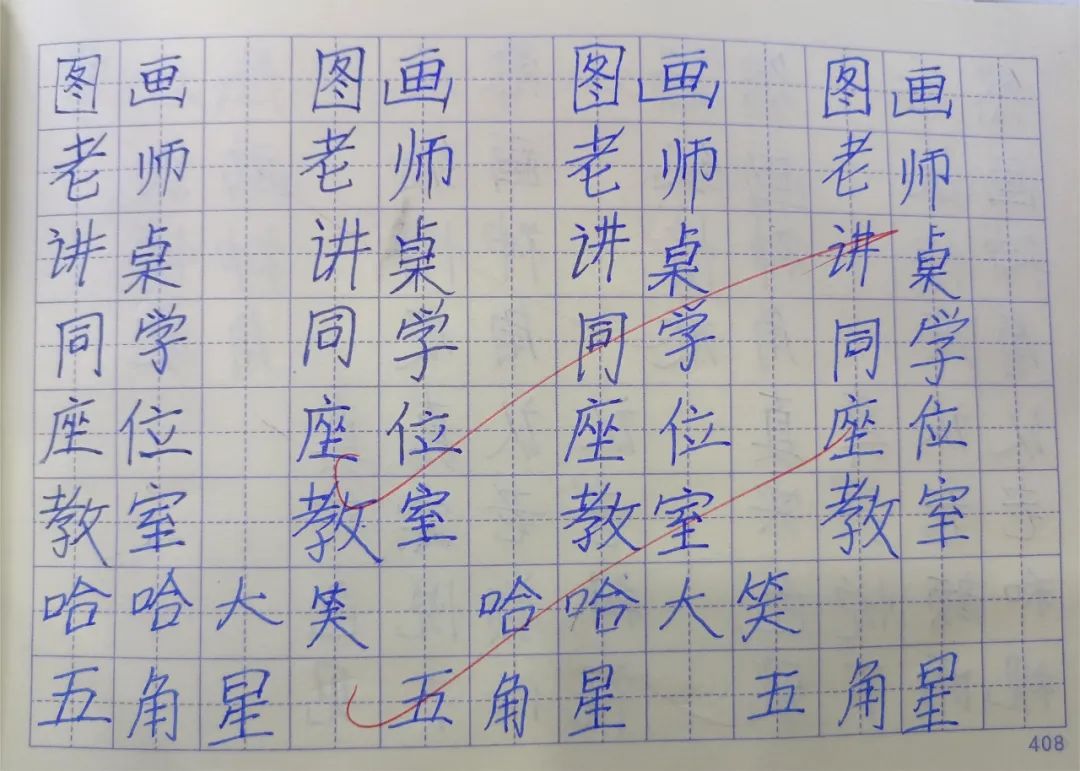 图画 图画 图画 图画
老师 老师 老师 老师
讲桌 讲桌 讲桌 讲桌
同学 同学 同学 同学
座位 座位 座位 座位
教室 教室 教室 教室
哈哈大笑 哈哈大笑
五角星 五角星 五角星
408